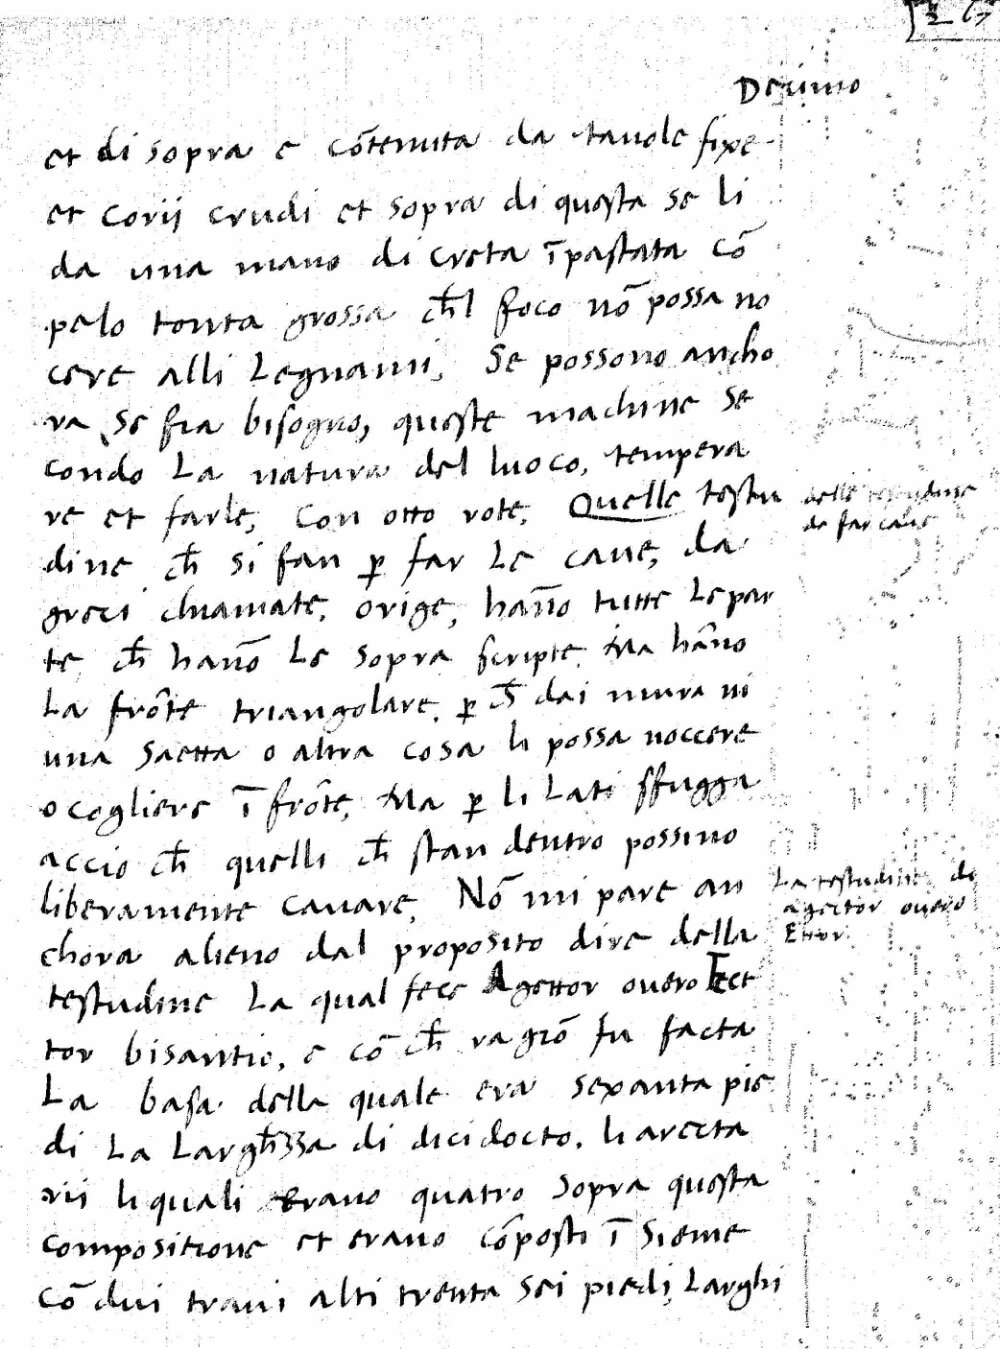 267
Decimo
et di sopra e cõtenuta da tauole fixe
et Corij crudi et sopra di questa se li
da una mano di Creta ĩpastata cõ
pelo tonta grossa ch̃l foco nõ possa no
cere alli Legnami, Se possono ancho
ra, Se fia bisogno, queste machine se
condo La natura del luoco, tempera
re et farle, Con otto rote, Quelle testu
delle testudine
da far caue
dine ch̃ si fan ꝑ far Le caue, da
greci chiamate, orige, hanño tutte Le par
te ch̃ hanõ Le sopra scripte, Ma hãno
La frõte triangolare, ꝑ ch̃ dai mura ni
una Saetta o altra cosa li possa noccere
o cogliere ĩ frõte, Ma ꝑ li Lati sfugga
accio ch̃ quelli ch̃ stan dentro possino
liberamente Cauare, Nõ mi pare an
La testudine di
agector ouero
Ettor.
chora alieno dal proposito dire della
testudine La qual fece Agettor ouero Ect
tor bisantio, e cõ ch̃ ragiõ fu facta
La basa della quale era sexanta pie
di La Largh̃zza di dicidocto, li arecta
rij li quali erano quatro sopra questa
compositione et erano cõposti ĩ Sieme
cõ dui traui alti trenta sei piedi, Larghi